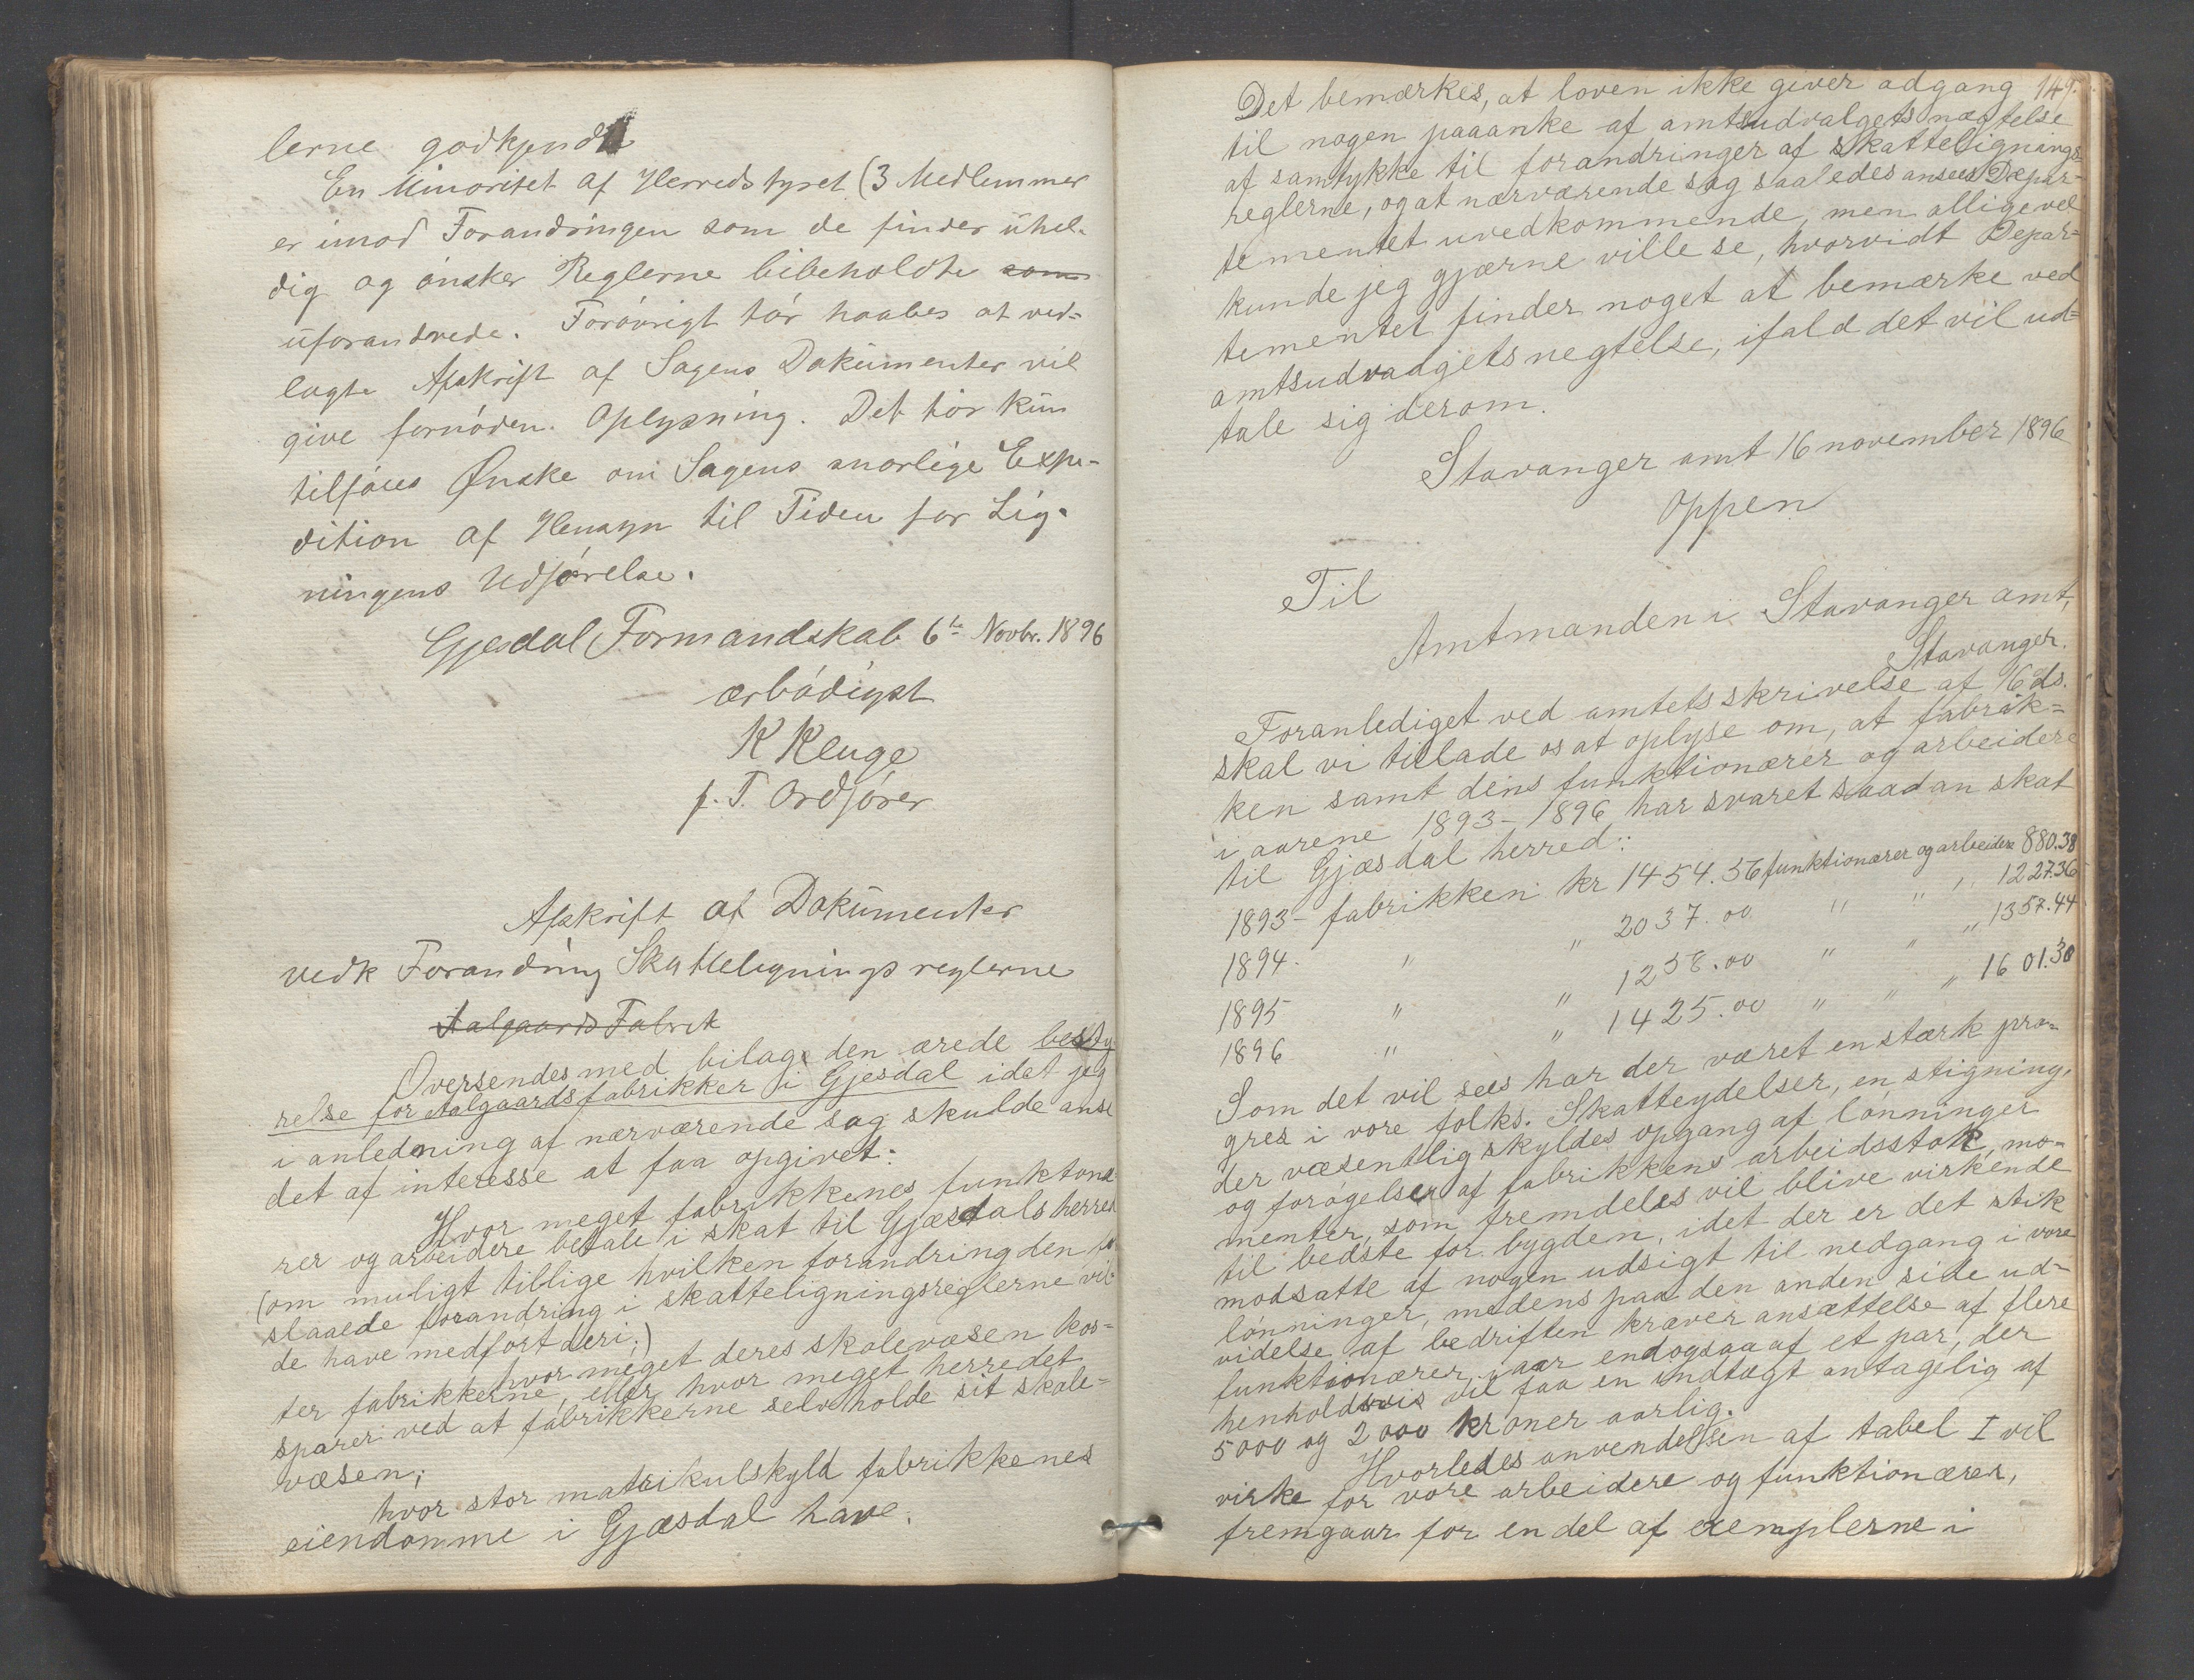 lerne godkjendt
En Minoritet af Herredstyret (3 Medlemmer
er imod Forandringen som de finder uhel-
dig og ønsker Reglerne bibeholdte som
uforandrede. Forøvrigt tør haabes at ved-
lagte Afskrift af Sagens Dokumenter vil
give fornøden Oplysning. Det tør kun
tilføies Ønske om Sagens snarlige Expe-
dition af Hensyn til Tiden for Lig-
ningens Udførelse.
Gjesdal Formandskab 6te Novbr. 1896
ærbødigst
K Kluge
p. T. Ordfører
Afskrift af Dokumenter
vedk Forandring Skatteligningsreglerne
Aalgaards Fabrik
Oversendes med bilage den ærede besty
relse for Aalgaards fabrikker i Gjesdal idet jeg
i anledning af nærværende sag skulde anse
det af interesse at faa opgivet:
Hvor meget fabrikkenes funktonæ
rer og arbeidere betale i skat til Gjæsdals herred
(om muligt tillige hvilken forandring den fo
slaaede forandring i skatteligningsreglerne vil
de have medført deri;)
hvor meget deres skolevæsen kos-
ter fabrikkerne, eller hvor meget herredet
sparer ved at fabrikkerne selv holde sit skole-
væsen;
hvor stor matrikulskyld fabrikkenes
eiendomme i Gjæsdal have.
149.
Det bemærkes, at loven ikke giver adgang
til nogen paaanke af amtsudvalgets nægtelse
af samtykke til forandringer af skattelignings-
reglerne, og at nærværende sag saaledes ansees Depar-
tementet uvedkommende, men alligevel
kunde jeg gjærne ville se, hvorvidt Depar-
tementet finder noget at bemærke ved
amtsudvadgets negtelse, ifald det vil ud-
tale sig derom.
Stavanger amt 16 november 1896
Oppen
Til
Amtmanden i Stavanger amt,
Stavanger.
Foranlediget ved amtets skrivelse af 16 ds.
skal vi tillade os at oplyse om, at fabrik-
ken samt dens funktionærer og arbeidere
i aarene 1893-1896 har svaret saadan skat
til Gjæsdal herred:
1893- fabrikken kr 1454.56 funktionærer og arbeidere 880.38
1894. " " 2037.00 " " " 1227.36
1895 " " 1258.00 " " " 1357.44
1896 " " 1425.00 " " " 1601.30
Som det vil sees har der været en stærk pro-
gres i vore folks. Skatteydelser, en stigning,
der væsentlig skyldes opgang af lønninger
og forøgelsen af fabrikkens arbeidsstok, mo-
menter, som fremdeles vil blive virkende
til bedste for bygden, idet der er det stik
modsatte af nogen udsigt til nedgang i vore
lønninger, medens paa den anden side ud-
videlse af bedriften kræver ansættelse af flere
funktionærer, iaar endogsaa af et par, der
henholdsvis vil faa en indtægt antagelig af
5000 og 2000 kroner aarlig.
Hvorledes anvendelsen af tabel I vil
virke for vore arbeidere og funktionærer,
fremgaar for en del af exemplerne i